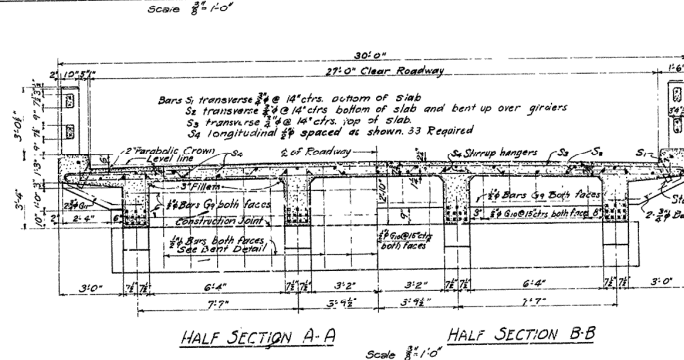 Scale 3/8"=1'-0"
30'-0"
2" 10" 5½" 27'-0" Clear Roadway 1'-6"
Bars S₁ transverse ¾"ϕ @ 14"ctrs. bottom of slab
S₂ transverse ¾"ϕ @ 14"ctrs bottom of slab and bent up over girders
S₃ transverse ¾"ϕ @ 14"ctrs. top of slab.
S₄ longitudinal ½"ϕ spaced as shown. 33 Required
2" Parabolic Crown
Level line
S₄
℄ of Roadway
S₄ Stirrup hangers
S₃
S₂
S₁
3" Fillets
½"ϕ Bars G₉ both faces
Construction Joint
½"ϕ Bars both faces
See Bent Detail
½"ϕ Bars G₉ Both faces
3" ½"ϕ G₁₀@15"ctrs both faces 8"
½"ϕ G₁₀@15"ctrs
both faces
2'-10"
9"
3'-0½"
3'-6"
10" 1'-0" 3" 1'-3"
2'-4" 6"
2"
3'-0" 7½" 7½" 6'-4" 7½" 7½" 3'-2" 3'-2" 7½" 7½" 6'-4" 7½" 7½" 3'-0"
7'-7" 3'-9½" 3'-9½" 7'-7"
HALF SECTION A-A
HALF SECTION B-B
Scale 3/8"=1'-0"